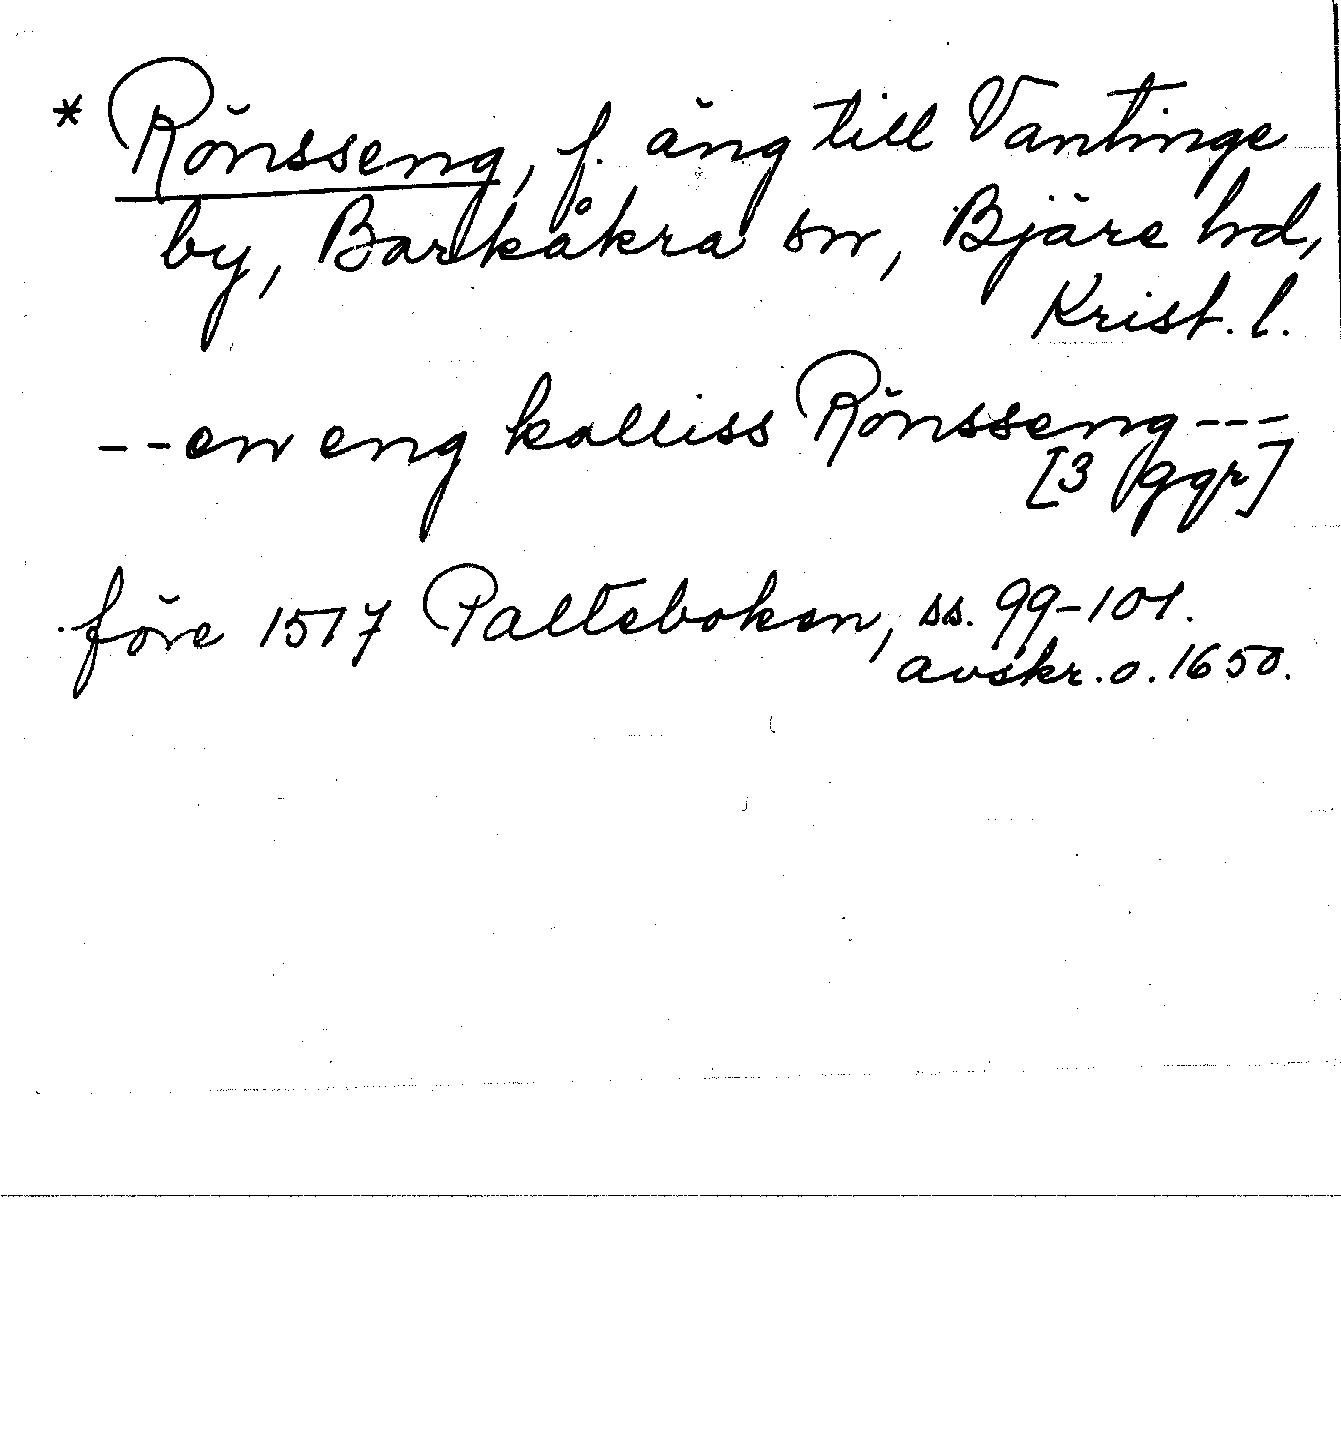 * Rönsseng, f. äng till Vantinge
by, Barkåkra sn, Bjäre hd,
Krist. l.
--en eng kalliss Rönsseng---
[3 ggr]
före 1517 Palteboken, ss. 99-101.
avskr. o. 1650.